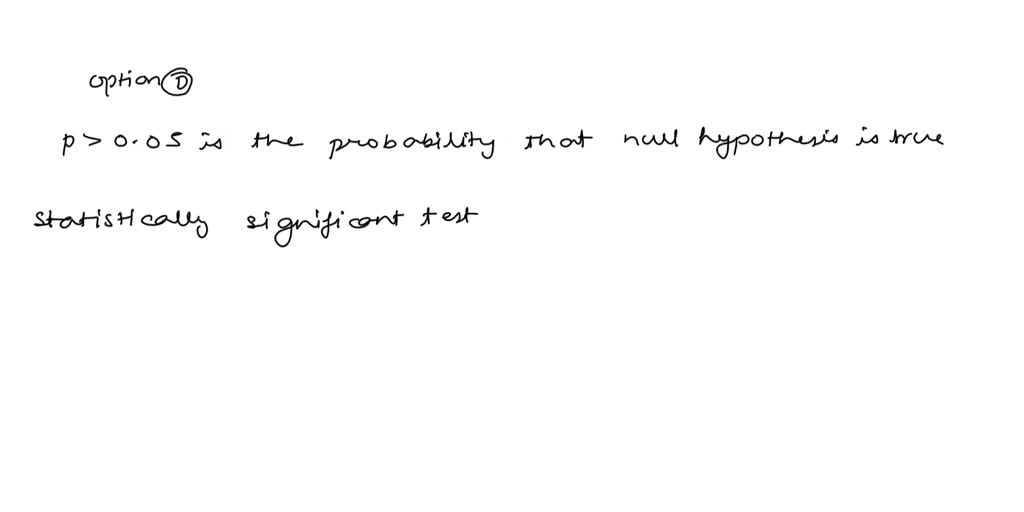 option D
p > 0.05 is the probability that null hypothesis is true
statistically significant test